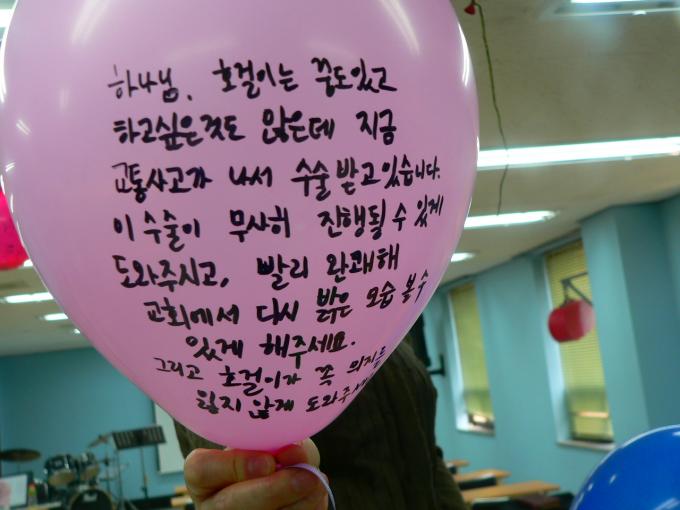 하나님, 호걸이는 꿈도있고
하고싶은것도 많은데 지금
교통사고가 나서 수술받고있습니다.
이 수술이 무사히 진행될 수 있게
도와주시고, 빨리 완쾌해
교회에서 다시 밝은 모습 볼수
있게 해주세요.
그리고 호걸이가 꼭 의지를
잃지 않게 도와주세